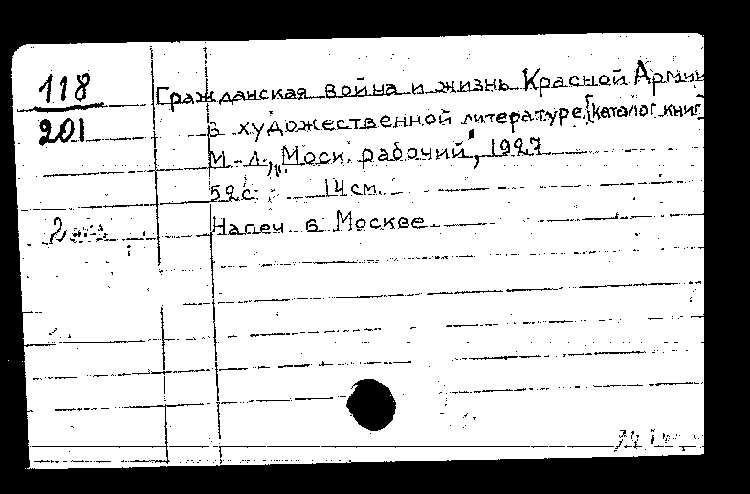 118 Гражданская война и жизнь Красной Армии
201 в художественной литературе. [каталог книг]
М.-Л., "Моск. рабочий", 1927
52 с. 14 см.
Напеч. в Москве